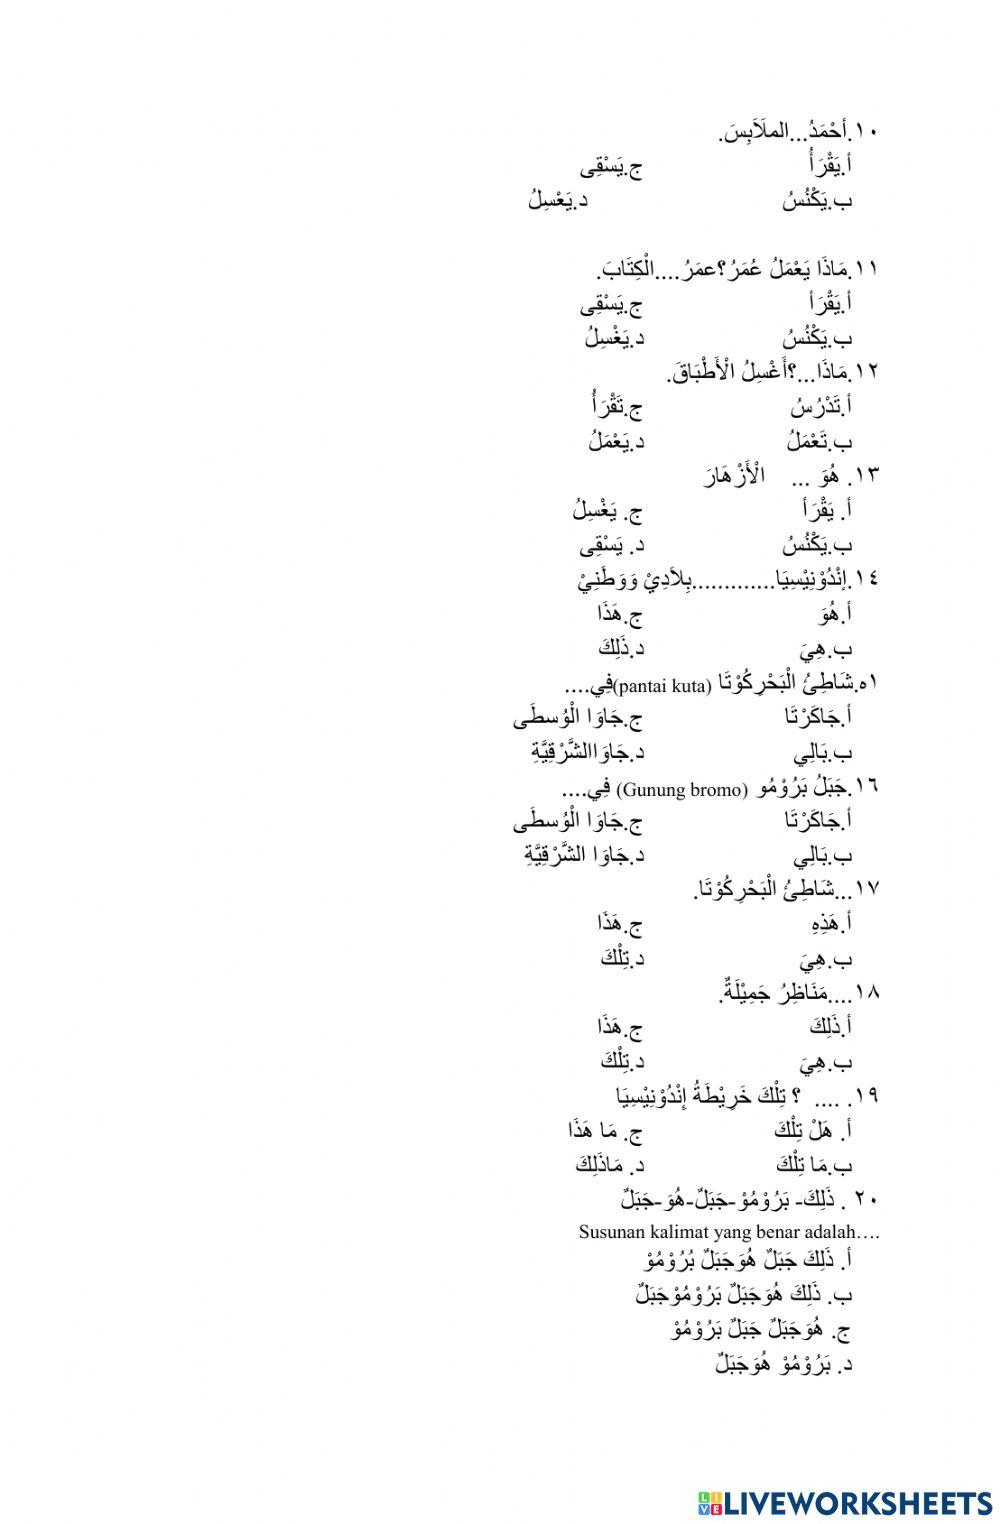 ١٠.أحْمَدُ...الملَاَبِسَ.
أ.يَقْرَأُ ج.يَسْقِى
ب.يَكْنُسُ د.يَعْسِلُ
١١.مَاذَا يَعْمَلُ عُمَرُ؟عمَرُ....الْكِتَابَ.
أ.يَقْرَأ ج.يَسْقِى
ب.يَكْنُسُ د.يَغْسِلُ
١٢.مَاذَا...؟أَغْسِلُ الْأَطْبَاقَ.
أ.تَدْرُسُ ج.تَقْرَأُ
ب.تَعْمَلُ د.يَعْمَلُ
١٣. هُوَ ... الْأَزْهَارَ
أ. يَقْرَأ ج. يَغْسِلُ
ب.يَكْنُسُ د. يَسْقِى
١٤.إنْدُوْنِيْسِيَا.............بِلاَدِيْ وَوَطَنِيْ
أ.هُوَ ج.هَذَا
ب.هِيَ د.ذَلِكَ
٥١.شَاطِئُ الْبَحْرِكُوْتَا (pantai kuta)فِي....
أ.جَاكَرْتَا ج.جَاوَا الْوُسطَى
ب.بَالِي د.جَاوَاالشَّرْقِيَّةِ
١٦.جَبَلُ بَرُوْمُو (Gunung bromo) فِي....
أ.جَاكَرْتَا ج.جَاوَا الْوُسطَى
ب.بَالِي د.جَاوَا الشَّرْقِيَّةِ
١٧...شَاطِئُ الْبَحْرِكُوْتَا.
أ.هَذِهِ ج.هَذَا
ب.هِيَ د.تِلْكَ
١٨....مَنَاظِرُ جَمِيْلَةٌ.
أ.ذَلِكَ ج.هَذَا
ب.هِيَ د.تِلْكَ
١٩. .... ؟ تِلْكَ خَرِيْطَةُ إِنْدُوْنِيْسِيَا
أ. هَلْ تِلْكَ ج. مَا هَذَا
ب.مَا تِلْكَ د. مَاذَلِكَ
٢٠ . ذَلِكَ- بَرُوْمُوْ-جَبَلٌ-هُوَ-جَبَلٌ
Susunan kalimat yang benar adalah....
أ. ذَلِكَ جَبَلٌ هُوَجَبَلٌ بُرُوْمُوْ
ب. ذَلِكَ هُوَجَبَلٌ بَرُوْمُوْجَبَلٌ
ج. هُوَجَبَلٌ جَبَلٌ بَرُوْمُوْ
د. بَرُوْمُوْ هُوَجَبَلٌ
LIVEWORKSHEETS